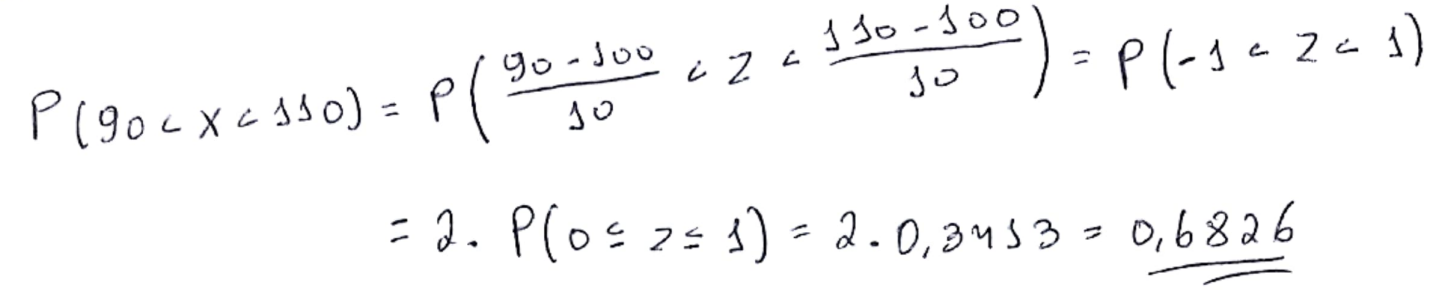 P(90 < X < 110) = P( (90 - 100)/10 < Z < (110 - 100)/10 ) = P(-1 < Z < 1)
= 2. P(0 ≤ z ≤ 1) = 2.0,3413 = 0,6826